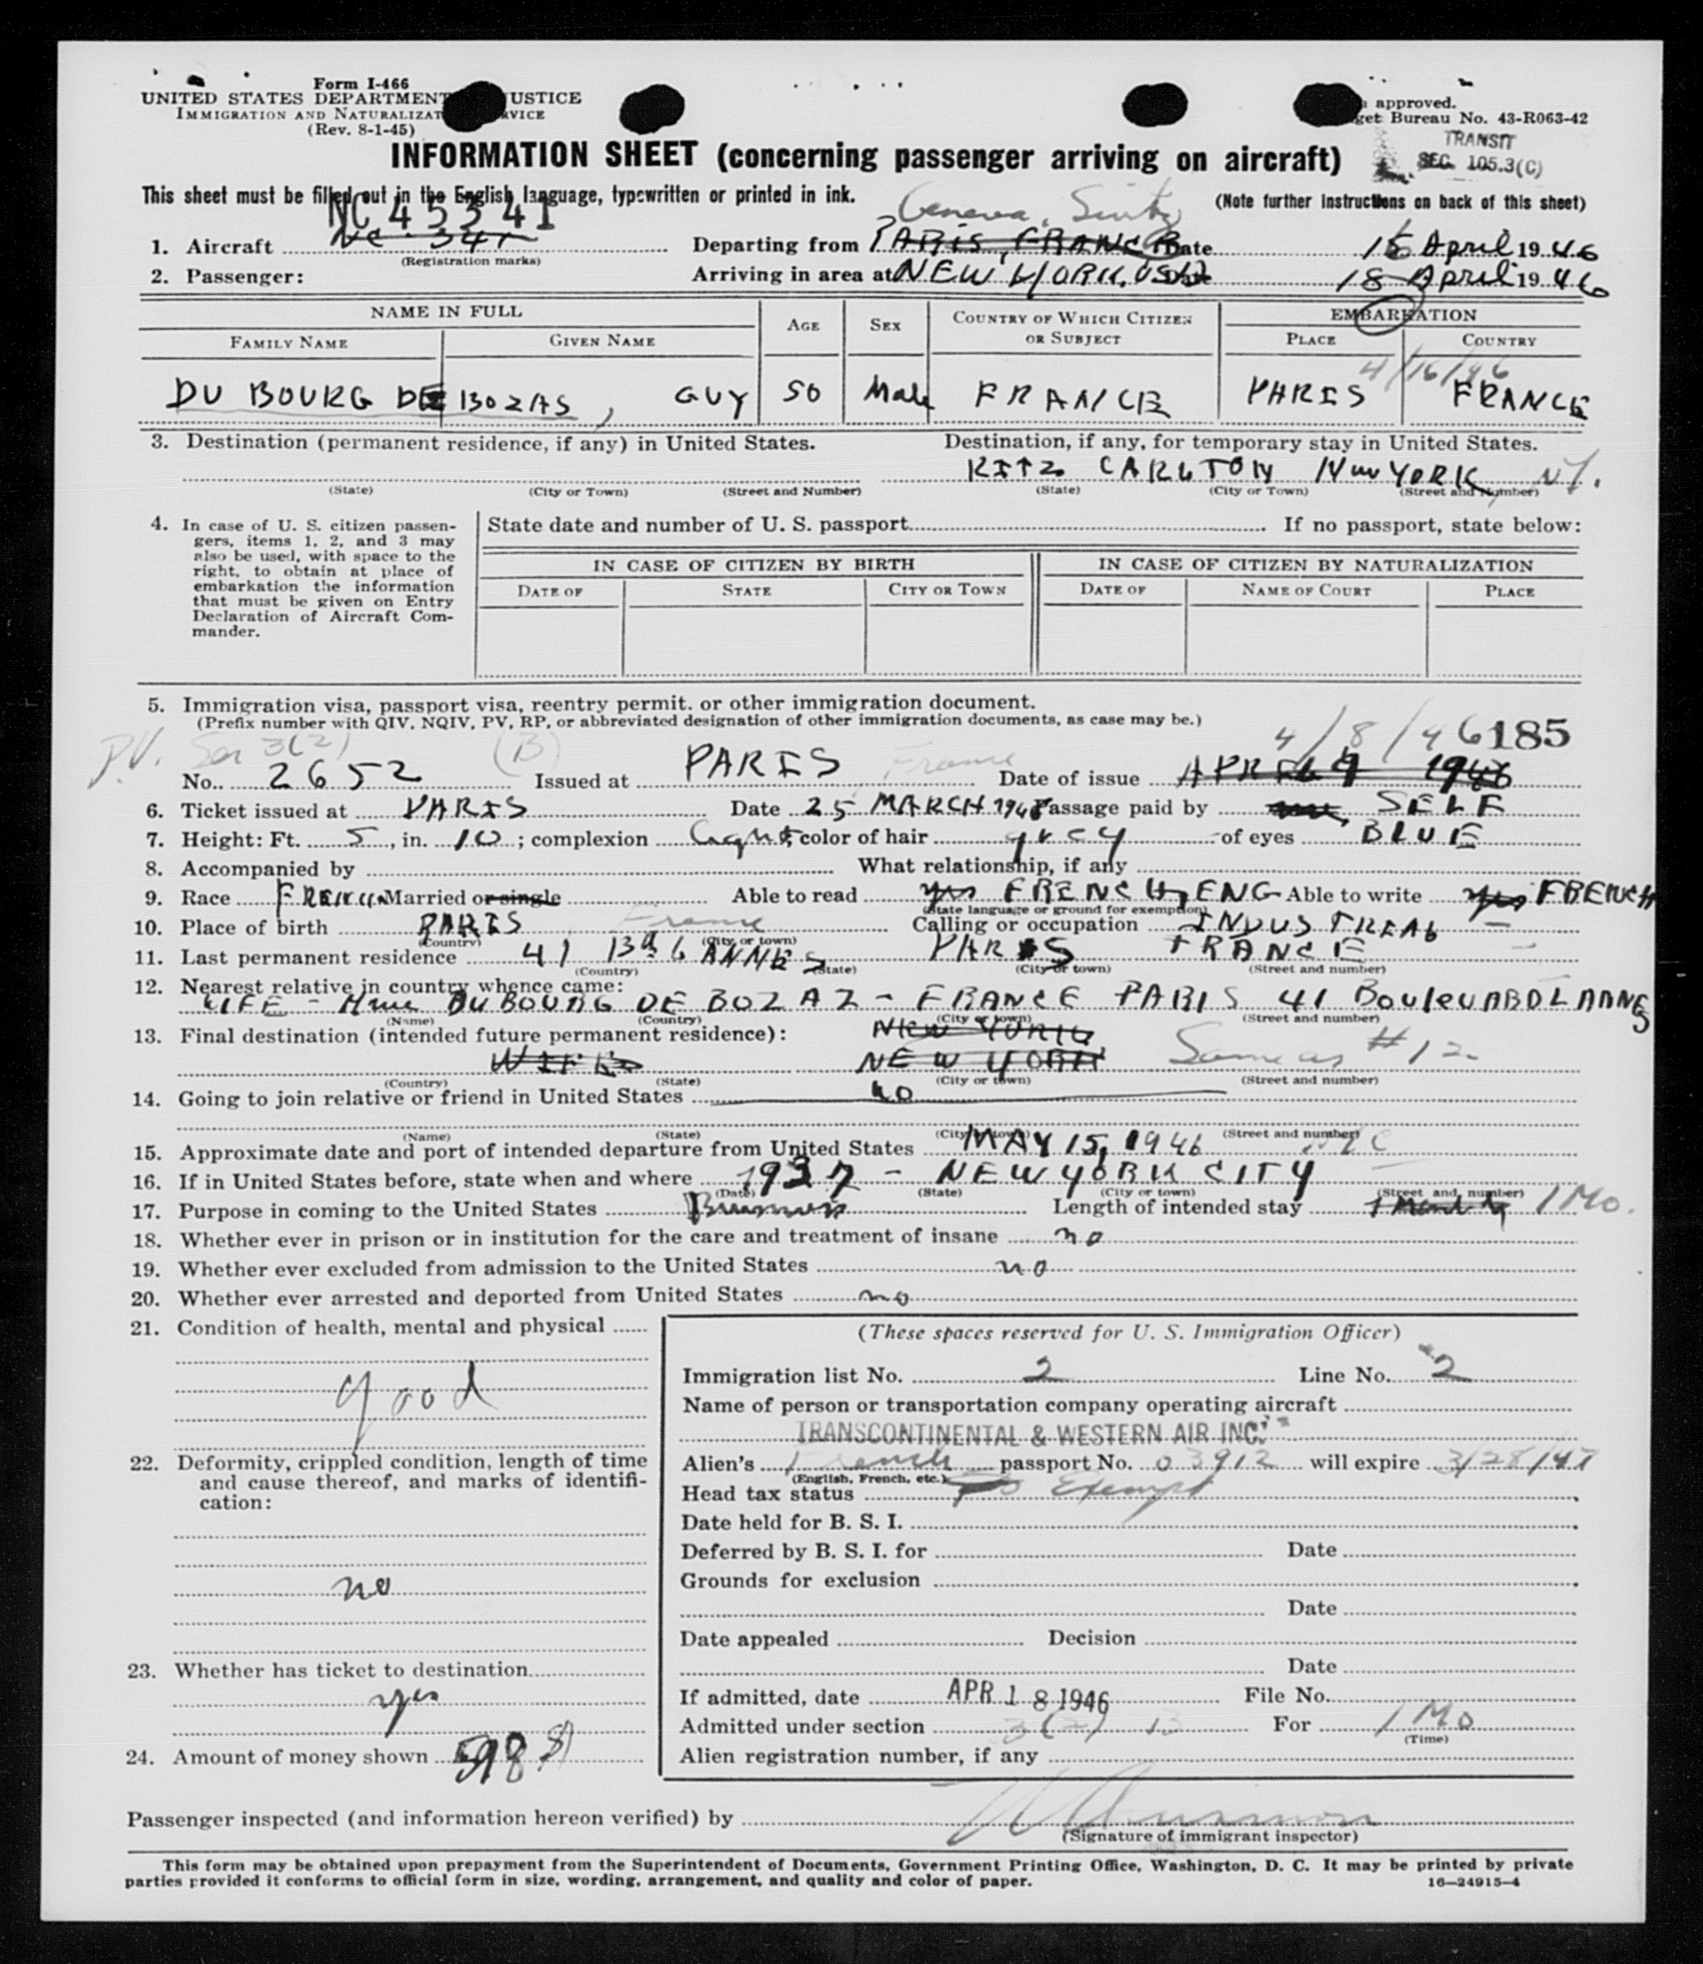 Form I-466
UNITED STATES DEPARTMENT USTICE
IMMIGRATION AND NATURALIZAT RVICE
(Rev. 8-1-45)
approved.
get Bureau No. 43-R063-42
TRANSIT
SEC. 105.3(C)
INFORMATION SHEET (concerning passenger arriving on aircraft)
This sheet must be filled out in the English language, typewritten or printed in ink.
(Note further instructions on back of this sheet)
NC 45341
Geneva,
1. Aircraft NC 341 Departing from PARIS, FRANCE Date 16 April 1946
(Registration marks)
2. Passenger: Arriving in area at NEW YORK, USA Date 18 April 1946
NAME IN FULL
FAMILY NAME GIVEN NAME AGE SEX COUNTRY OF WHICH CITIZEN OR SUBJECT EMBARKATION
PLACE COUNTRY
4/16/46
DU BOURG DE BOZAS, GUY 50 Male FRANCE PARIS FRANCE
3. Destination (permanent residence, if any) in United States. Destination, if any, for temporary stay in United States.
RITZ CARLTON New YORK, NY.
(State) (City or Town) (Street and Number) (State) (City or Town) (Street and Number)
4. In case of U. S. citizen passengers, items 1, 2, and 3 may also be used, with space to the right, to obtain at place of embarkation the information that must be given on Entry Declaration of Aircraft Commander.
State date and number of U. S. passport If no passport, state below:
IN CASE OF CITIZEN BY BIRTH IN CASE OF CITIZEN BY NATURALIZATION
DATE OF STATE CITY OR TOWN DATE OF NAME OF COURT PLACE
5. Immigration visa, passport visa, reentry permit, or other immigration document.
(Prefix number with QIV, NQIV, PV, RP, or abbreviated designation of other immigration documents, as case may be.)
P.V. Sec 3(2) (B) 4/8/46 185
No. 2652 Issued at PARIS France Date of issue APRIL 9 1946
6. Ticket issued at PARIS Date 25 MARCH 1946 Passage paid by SELF
7. Height: Ft. 5, in. 10; complexion light; color of hair grey of eyes BLUE
8. Accompanied by What relationship, if any
9. Race FRENCH Married or single Able to read yes FRENCH, ENG Able to write yes FRENCH
(State language or ground for exemption)
10. Place of birth PARIS France Calling or occupation INDUSTRIAL
(Country) (City or town)
11. Last permanent residence 41 Bd LANNES PARIS FRANCE
(Country) (State) (City or town) (Street and number)
12. Nearest relative in country whence came:
WIFE - Mme DU BOURG DE BOZAZ - FRANCE PARIS 41 BoulevARD LANNES
(Name) (Country) (City or town) (Street and number)
13. Final destination (intended future permanent residence): NEW YORK
WIFE NEW YORK Same as #12
(Country) (State) (City or town) (Street and number)
14. Going to join relative or friend in United States no
(Name) (State) (City or town) (Street and number)
15. Approximate date and port of intended departure from United States MAY 15, 1946 NYC
16. If in United States before, state when and where 1937 - NEW YORK CITY
(Date) (State) (City or town) (Street and number)
17. Purpose in coming to the United States Business Length of intended stay 1 Month 1 Mo.
18. Whether ever in prison or in institution for the care and treatment of insane no
19. Whether ever excluded from admission to the United States no
20. Whether ever arrested and deported from United States no
21. Condition of health, mental and physical
good
22. Deformity, crippled condition, length of time and cause thereof, and marks of identification:
no
23. Whether has ticket to destination
yes
24. Amount of money shown 598
(These spaces reserved for U. S. Immigration Officer)
Immigration list No. 2 Line No. 2
Name of person or transportation company operating aircraft
TRANSCONTINENTAL & WESTERN AIR INC.
Alien's French passport No. 03912 will expire 3/28/47
(English, French, etc.)
Head tax status Exempt
Date held for B. S. I.
Deferred by B. S. I. for Date
Grounds for exclusion
Date
Date appealed Decision
Date
If admitted, date APR 18 1946 File No.
Admitted under section 3(2) B For 1 Mo
(Time)
Alien registration number, if any
Passenger inspected (and information hereon verified) by
(Signature of immigrant inspector)
This form may be obtained upon prepayment from the Superintendent of Documents, Government Printing Office, Washington, D. C. It may be printed by private
parties provided it conforms to official form in size, wording, arrangement, and quality and color of paper.
16—24915-4